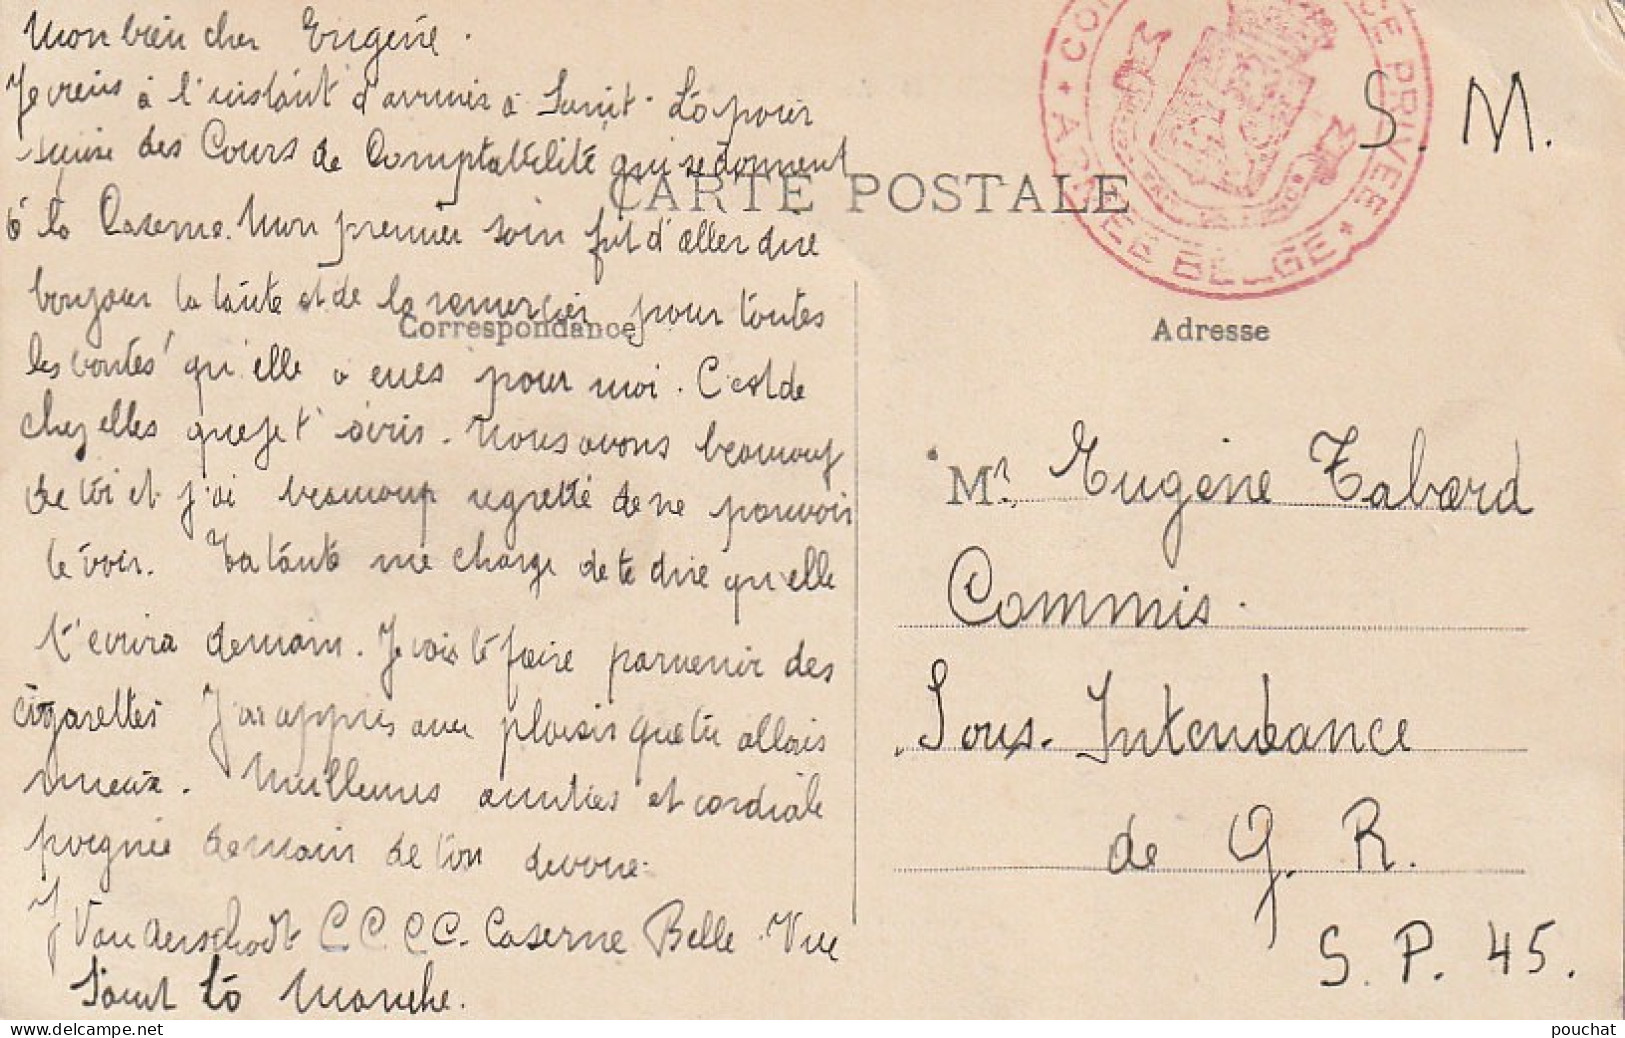 Mon bien cher Eugène.
Je viens à l'instant d'arriver à Saint-Lô pour
suivre des Cours de Comptabilité qui se donnent
à la Caserne. Mon premier soin fut d'aller dire
bonjour ta tante et de la remercier pour toutes
les bontés qu'elle a eues pour moi. C'est de
chez elles que je t'écris. Nous avons beaucoup
de toi et j'ai beaucoup regretté de ne pouvoir
te voir. Ta tante me charge de te dire qu'elle
t'écrira demain. Je vais te faire parvenir des
cigarettes J'ai appris avec plaisir que tu allais
mieux. Meilleures amitiés et cordiale
poignée de main de ton dévoué.
J Van Aerschodt C C C C. Caserne Belle Vue
Saint Lô Manche.
CARTE POSTALE
Correspondance
Adresse
CE PRIVÉE
* ARMÉE BELGE *
S. M.
Mr. Eugène Tabard
Commis.
Sous-Intendance
de G. R.
S. P. 45.
delcampe.net
pouchat